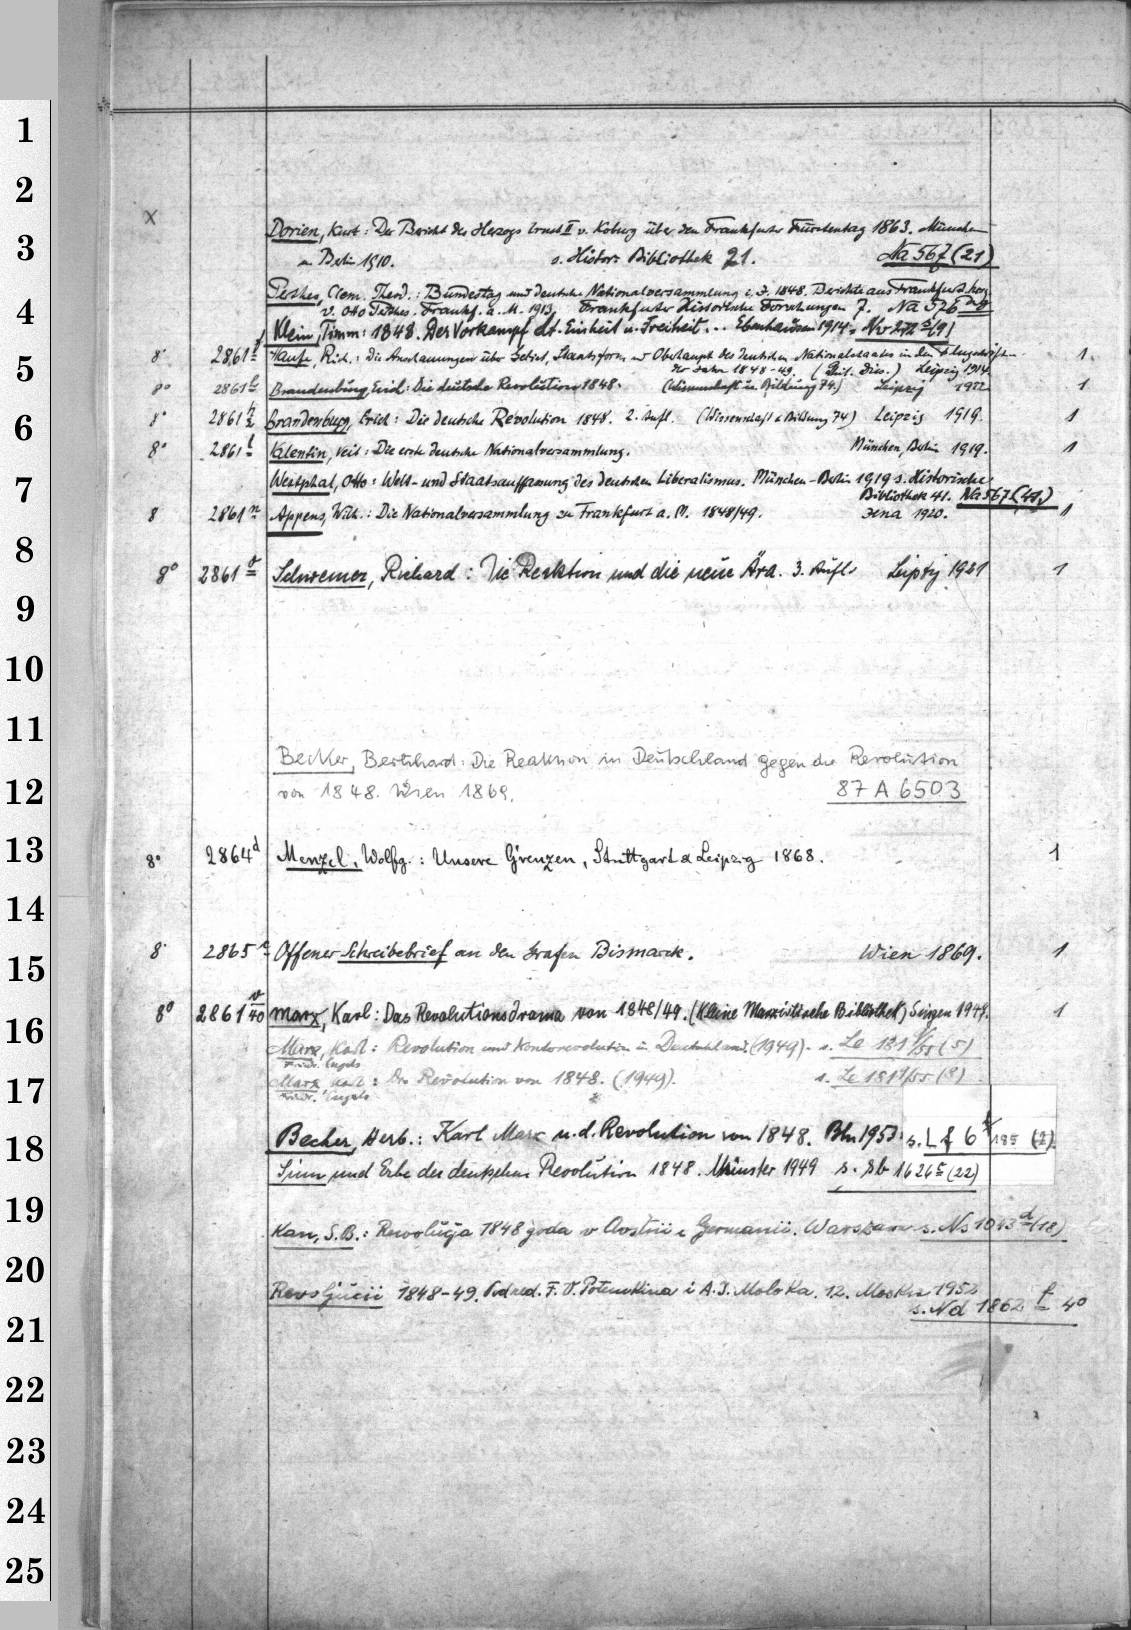 1
2
x
Dorien, Kurt: Der Bericht des Herzogs Ernst II v. Koburg über den Frankfurter Fürstentag 1863. München
3
u. Berlin 1910. s. Histor. Bibliothek 21. Na 567 (21)
Perthes, Clem. Theod.: Bundestag und deutsche Nationalversammlung i. J. 1848. Berichte aus Frankfurt, hrg.
4
v. Otto Perthes. Frankf. a. M. 1913. Frankfurter Historische Forschungen 7. Na 526
Klein, Timm: 1848. Der Vorkampf dt. Einheit u. Freiheit... Ebenhausen 1914.
8° 2861 Haufe, Rich.: die Anschauungen über Gebiet, Staatsform u. Oberhaupt des deutschen Nationalstaates in den Flugschriften 1
5
der Jahre 1848-49. (Phil. Diss.) Leipzig 1914.
8° 2861 Brandenburg, Erich: Die deutsche Revolution 1848. (Wissenschaft u. Bildung 74.) Leipzig 1912 1
8° 2861 Brandenburg, Erich: Die deutsche Revolution 1848. 2. Aufl. (Wissenschaft u. Bildung 74) Leipzig 1919. 1
6
8° 2861 l Valentin, Veit: Die erste deutsche Nationalversammlung. München, Berlin 1919. 1
7
Westphal, Otto: Welt- und Staatsauffassung des deutschen Liberalismus. München-Berlin 1919 s. Historische
Bibliothek 41. Na 567 (41.)
8 2861 n Appens, Wilh.: Die Nationalversammlung zu Frankfurt a. M. 1848/49. Jena 1920. 1
8
8° 2861 o Schwemer, Richard: Die Reaktion und die neue Ära. 3. Aufl. Leipzig 1921 1
9
10
11
Becker, Bernhard: Die Reaktion in Deutschland gegen die Revolution
12
von 1848. Wien 1869. 87 A 6503
13
8° 2864 d Menzel, Wolfg.: Unsere Grenzen, Stuttgart & Leipzig 1868. 1
14
15
8° 2865 Offener Schreibebrief an den Grafen Bismarck. Wien 1869. 1
8° 2861 v/40 Marx, Karl: Das Revolutionsdrama von 1848/49. (Kleine Marxistische Bibliothek) Singen 1949. 1
16
Marx, Karl: Revolution und Konterrevolution in Deutschland. (1949). s. Le 131 /55 (5)
Friedr. Engels
17
Marx, Karl: Die Revolution von 1848. (1949). s. Le 131 /55 (8)
Friedr. Engels
18
Becher, Herb.: Karl Marx u. d. Revolution von 1848. Bln 1953. s. Lf 6 /195 (2)
Sinn und Erbe der deutschen Revolution 1848. Münster 1949 s. Sb 1626 (22)
19
Kan, S.B.: Revolucija 1848 goda v Avstrii i Germanii. s. Ns 1043 d (18)
20
Revoljucii 1848-49. Pod red. F. V. Potemkina i A. I. Moloka. 1.2. Moskva 1952
s. Nd 1862 f 4°
21
22
23
24
25